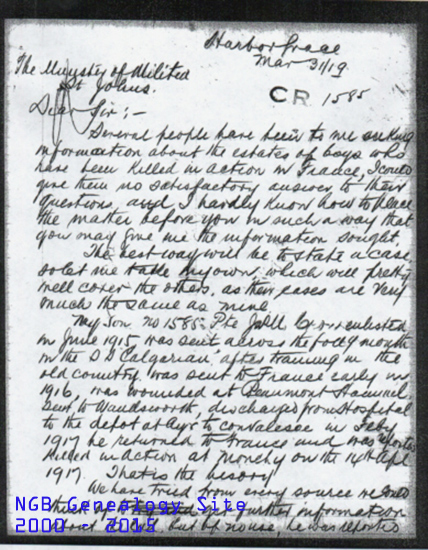 Harbor Grace
Mar 31/19
The Ministry of Militia
St Johns.
CR 1585
Dear Sir:-
Several people have been to me seeking
information about the estates of boys who
have been killed in action in France, I could
give them no satisfactory answer to their
questions, and I hardly know how to place
the matter before you in such a way that
you may give me the information sought.
The best way will be to state a case,
so let me take my own, which will pretty
well cover the others, as their cases are very
much the same as mine
My Son No 1585. Pte enlisted
in June 1915, was sent across the month
in the S.S Calgarian, after training in the
old country was sent to France early in
1916, was wounded at Beaumont Hamel
sent to Wandsworth, discharged from Hospital
to the depot at Ayr to convalesce in Feby
1917 he returned to France and was reported
killed in action at Monchy on the 14th Apl
1917. That is the history
We have tried from every source we could
further information
but of no use, he was reported
NGB Genealogy Site
2000 - 2015